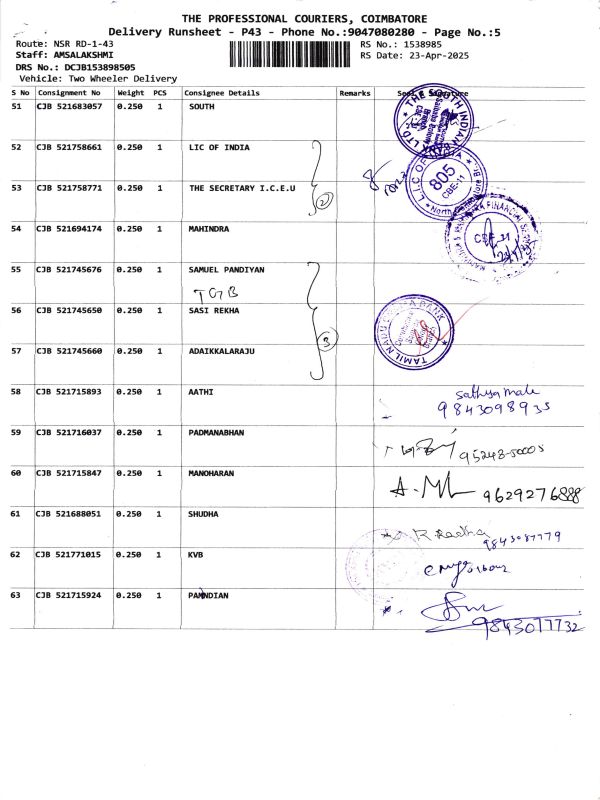 THE PROFESSIONAL COURIERS, COIMBATORE
Delivery Runsheet - P43 - Phone No.:9047080280 - Page No.:5
Route: NSR RD-1-43 RS No.: 1538985
Staff: AMSALAKSHMI RS Date: 23-Apr-2025
DRS No.: DCJB153898505
Vehicle: Two Wheeler Delivery
S No Consignment No Weight PCS Consignee Details Remarks Seal & Signature
51 CJB 521683057 0.250 1 SOUTH
THE SOUTH INDIAN
52 CJB 521758661 0.250 1 LIC OF INDIA
805
CBE-11
53 CJB 521758771 0.250 1 THE SECRETARY I.C.E.U
2
54 CJB 521694174 0.250 1 MAHINDRA
55 CJB 521745676 0.250 1 SAMUEL PANDIYAN
TGB
56 CJB 521745650 0.250 1 SASI REKHA
TAMIL NADU BANK
3
57 CJB 521745660 0.250 1 ADAIKKALARAJU
58 CJB 521715893 0.250 1 AATHI
9843098935
59 CJB 521716037 0.250 1 PADMANABHAN
60 CJB 521715847 0.250 1 MANOHARAN
61 CJB 521688051 0.250 1 SHUDHA
R Radha
9843087779
62 CJB 521771015 0.250 1 KVB
63 CJB 521715924 0.250 1 PANDIAN
9843077732